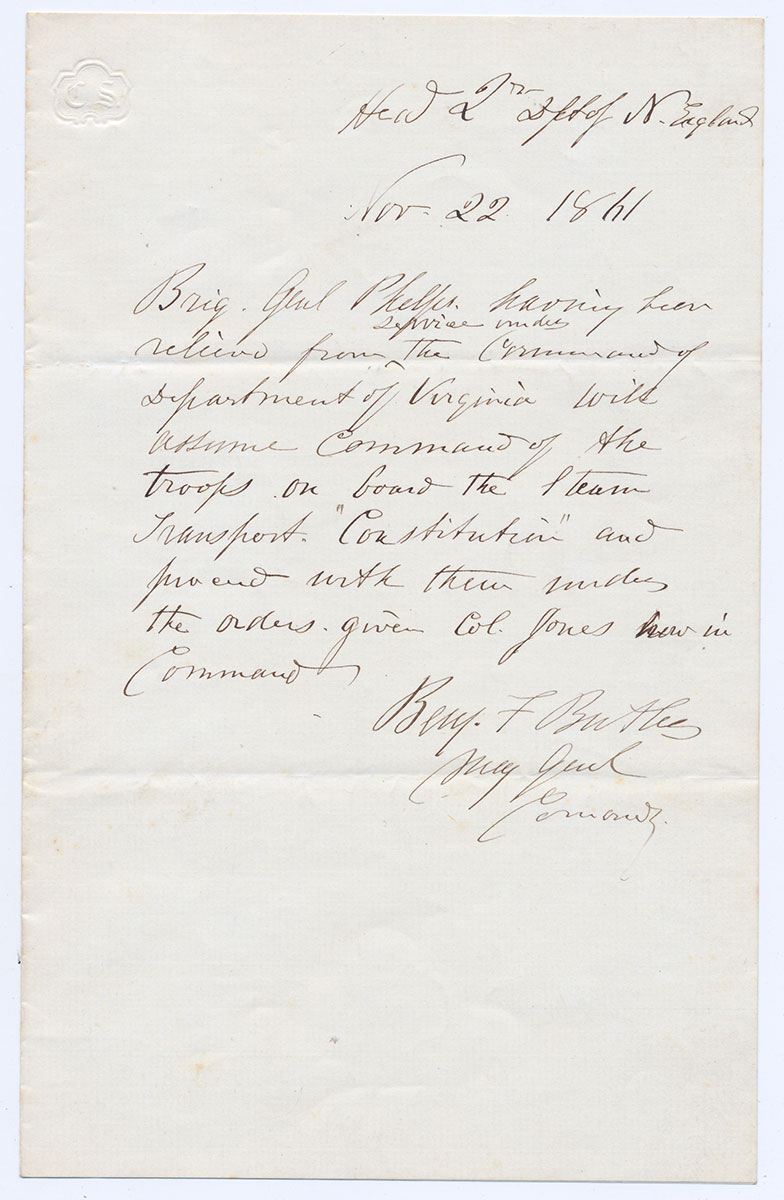 C. S.
Head Qrs Dpt of N. England
Nov. 22. 1861
Brig. Genl Phelps. having been
service under
relieved from the Command of
Department of Virginia will
assume Command of the
troops on board the Steam
Transport. "Constitution" and
proceed with them under
the orders. given Col. Jones now in
Command
Benj. F Butler
Maj Genl
Comandg.